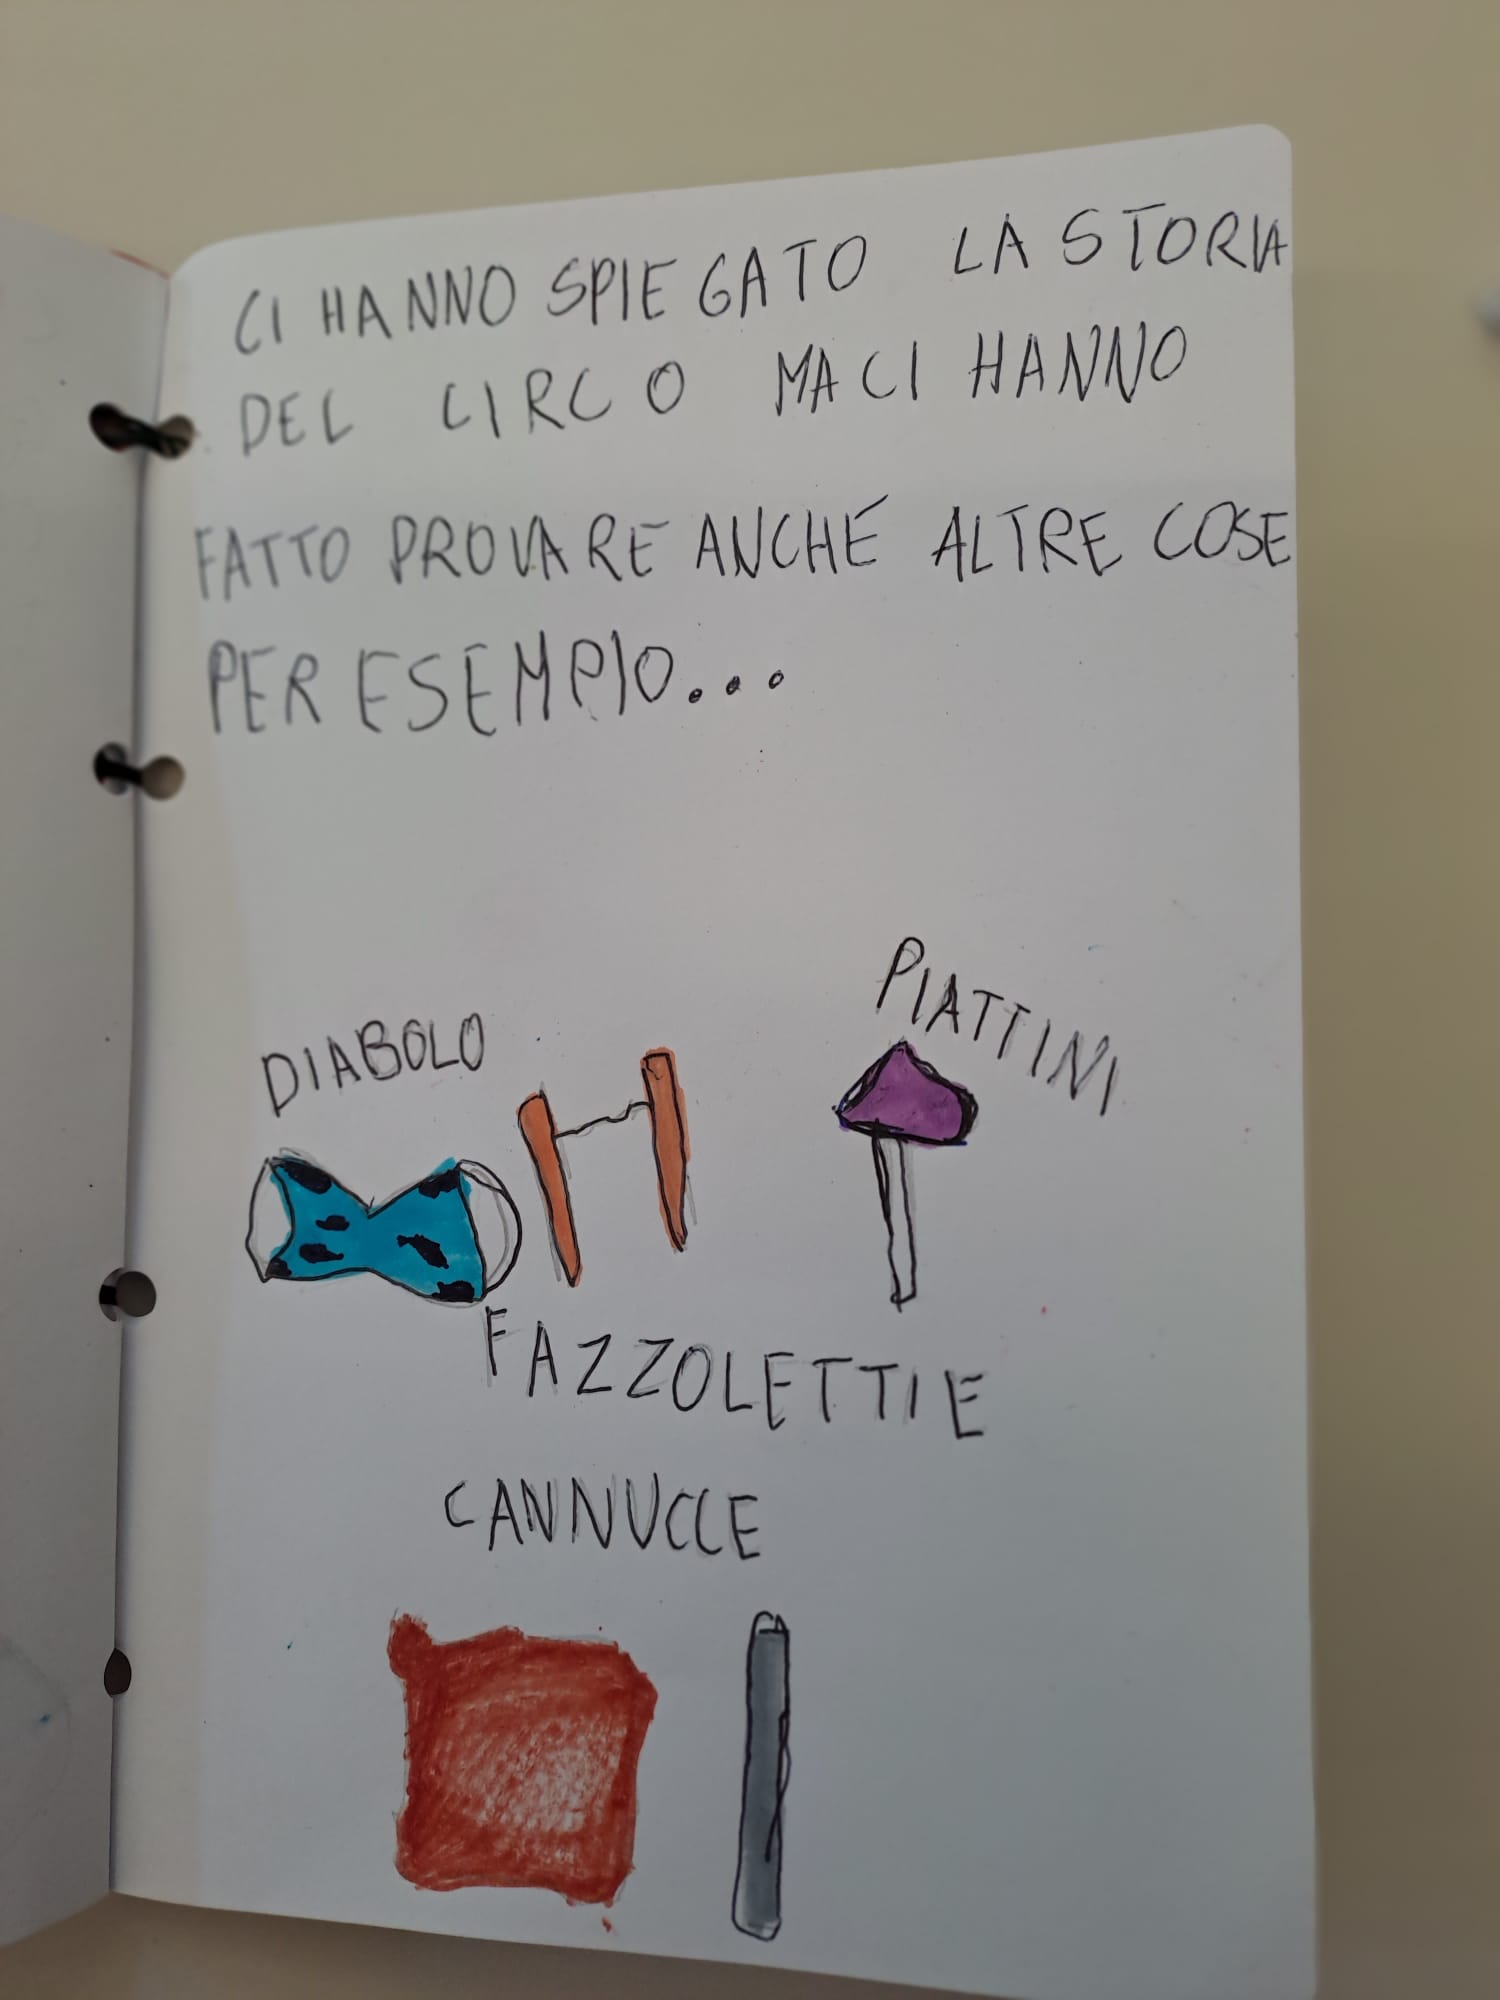 CI HANNO SPIEGATO LA STORIA
DEL CIRCO MA CI HANNO
FATTO PROVARE ANCHE ALTRE COSE
PER ESEMPIO...
DIABOLO
PIATTINI
FAZZOLETTI E
CANNUCCE